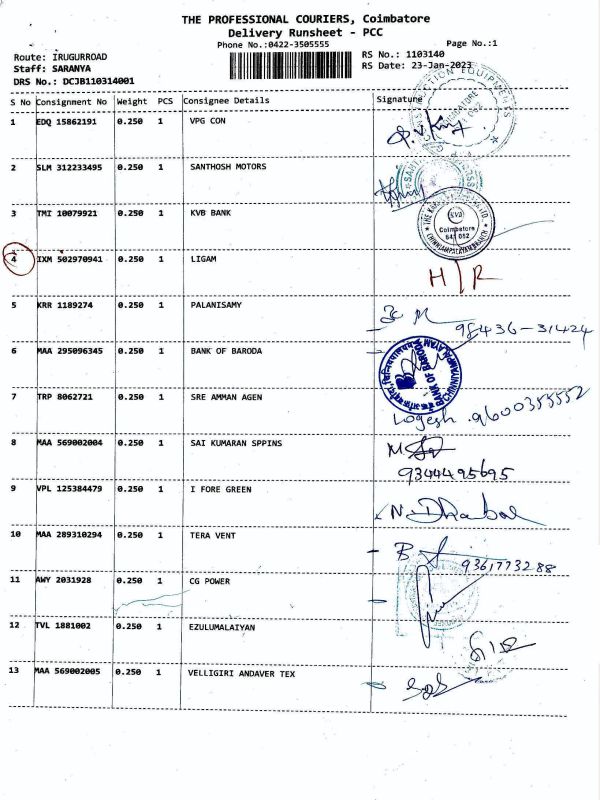 THE PROFESSIONAL COURIERS, Coimbatore
Delivery Runsheet - PCC
Phone No.:0422-3505555
Page No.:1
Route: IRUGURROAD
RS No.: 1103140
Staff: SARANYA
RS Date: 23-Jan-2023
DRS No.: DCJB110314001
S No Consignment No Weight PCS Consignee Details Signature
1 EDQ 15862191 0.250 1 VPG CON
2 SLM 312233495 0.250 1 SANTHOSH MOTORS
3 TMI 10079921 0.250 1 KVB BANK
KVB
Coimbatore
641 062
4 IXM 502970941 0.250 1 LIGAM
H/R
5 KRR 1189274 0.250 1 PALANISAMY
98436-31424
6 MAA 295096345 0.250 1 BANK OF BARODA
BANK OF BARODA
7 TRP 8062721 0.250 1 SRE AMMAN AGEN
Logesh 9600355552
8 MAA 569002004 0.250 1 SAI KUMARAN SPPINS
9344495695
9 VPL 125384479 0.250 1 I FORE GREEN
N. Dhabal
10 MAA 289310294 0.250 1 TERA VENT
9361773288
11 AWY 2031928 0.250 1 CG POWER
12 TVL 1881002 0.250 1 EZULUMALAIYAN
13 MAA 569002005 0.250 1 VELLIGIRI ANDAVER TEX